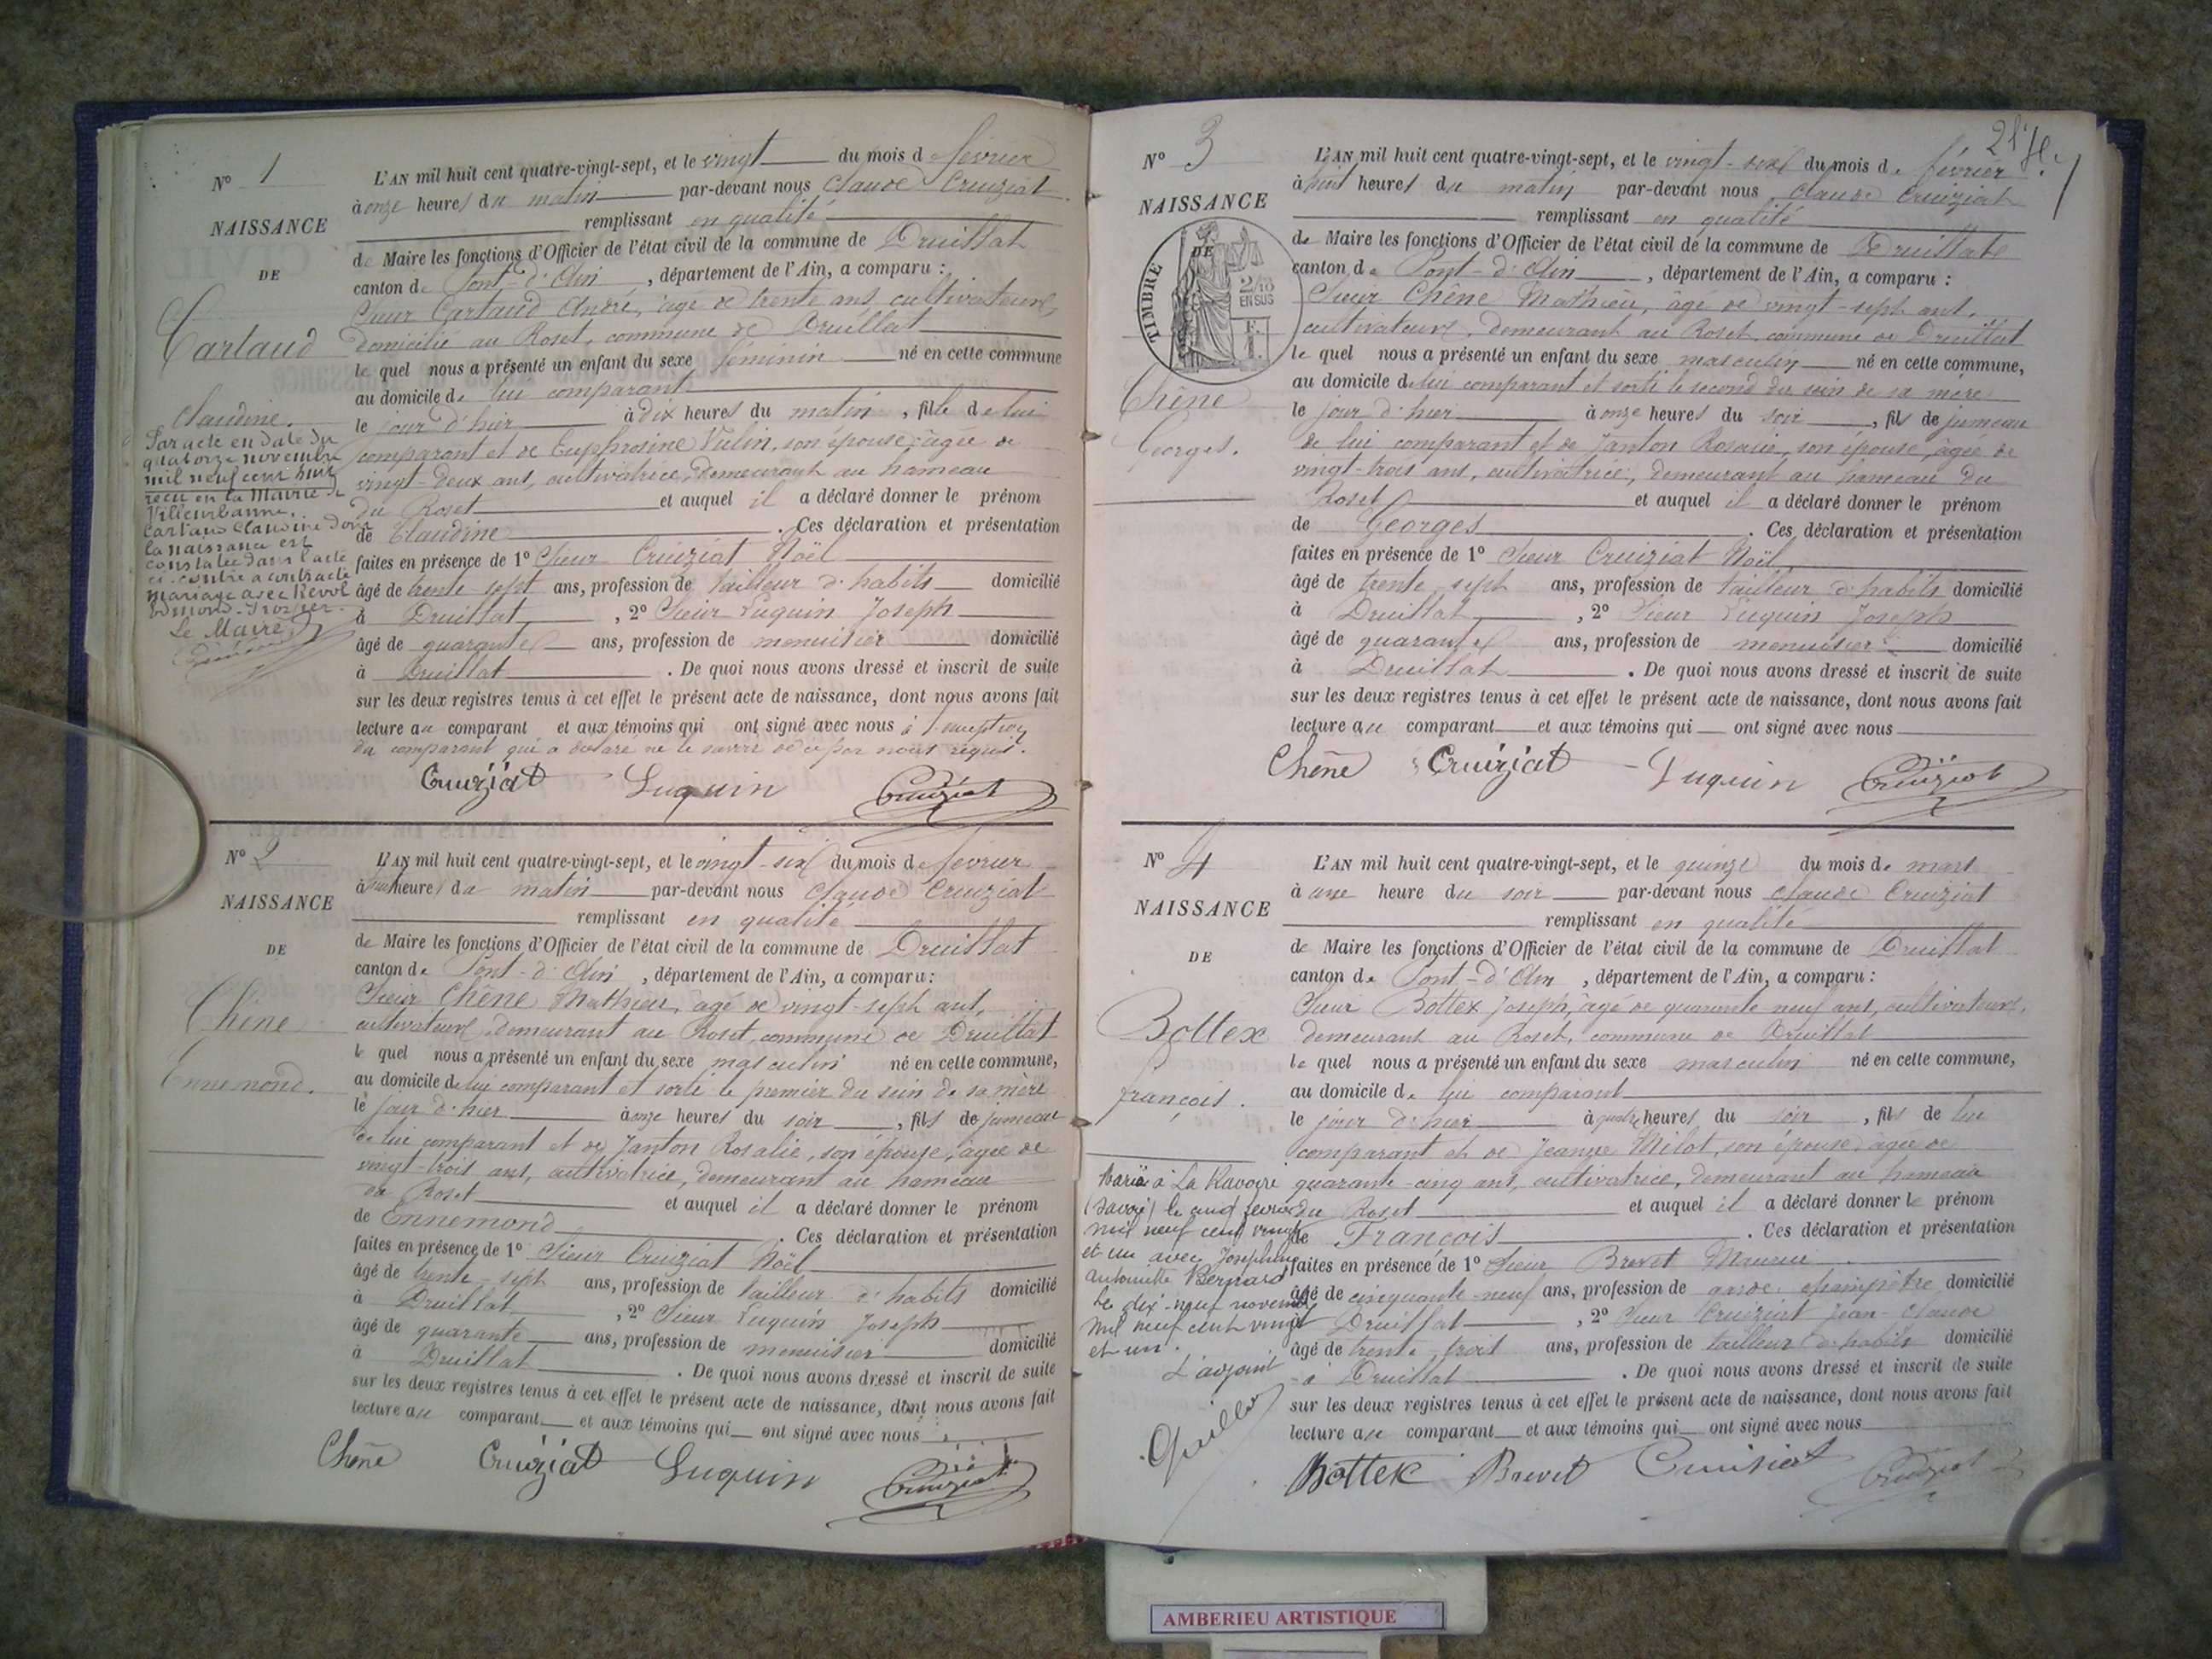 Nº 1
NAISSANCE
DE
Cartaud
Claudine.
Par acte en date du
quatorze novembre
mil neuf cent huit
reçu en la Mairie de
Villeurbanne,
Cartaud Claudine dont
la naissance est
constatée dans l'acte
ci-contre a contracté
mariage avec Revol
Edmond
Le Maire,
L'AN mil huit cent quatre-vingt-sept, et le vingt du mois de février
à onze heures du matin par-devant nous Claude Cruiziat
remplissant en qualité
de Maire les fonctions d'Officier de l'état civil de la commune de Druillat
canton de Pont-d'Ain, département de l'Ain, a comparu :
Sieur Cartaud André, âgé de trente ans, cultivateur,
domicilié au Roset, commune de Druillat
le quel nous a présenté un enfant du sexe féminin né en cette commune
au domicile de lui comparant
le jour d'hier à dix heures du matin, fille de lui
comparant et de Euphrosine Vulin, son épouse, âgée de
vingt-deux ans, cultivatrice, demeurant au hameau
du Roset et auquel il a déclaré donner le prénom
de Claudine. Ces déclaration et présentation
faites en présence de 1º Sieur Cruiziat Noël
âgé de trente-sept ans, profession de tailleur d'habits domicilié
à Druillat, 2º Sieur Luquin Joseph
âgé de quarante ans, profession de menuisier domicilié
à Druillat. De quoi nous avons dressé et inscrit de suite
sur les deux registres tenus à cet effet le présent acte de naissance, dont nous avons fait
lecture au comparant et aux témoins qui ont signé avec nous à l'exception
du comparant qui a déclaré ne le savoir de ce par nous requis.
Cruiziat Luquin Cruiziat
Nº 2
NAISSANCE
DE
Chêne
Ennemond.
L'AN mil huit cent quatre-vingt-sept, et le vingt-six du mois de février
à huit heures du matin par-devant nous Claude Cruiziat
remplissant en qualité
de Maire les fonctions d'Officier de l'état civil de la commune de Druillat
canton de Pont-d'Ain, département de l'Ain, a comparu :
Sieur Chêne Mathieu, âgé de vingt-sept ans,
cultivateur, demeurant au Roset, commune de Druillat
le quel nous a présenté un enfant du sexe masculin né en cette commune,
au domicile de lui comparant et sorti le premier du sein de sa mère
le jour d'hier à onze heures du soir, fils de jumeau
de lui comparant et de Janton Rosalie, son épouse, âgée de
vingt-trois ans, cultivatrice, demeurant au hameau
du Roset et auquel il a déclaré donner le prénom
de Ennemond. Ces déclaration et présentation
faites en présence de 1º Sieur Cruiziat Noël
âgé de trente-sept ans, profession de tailleur d'habits domicilié
à Druillat, 2º Sieur Luquin Joseph
âgé de quarante ans, profession de menuisier domicilié
à Druillat. De quoi nous avons dressé et inscrit de suite
sur les deux registres tenus à cet effet le présent acte de naissance, dont nous avons fait
lecture au comparant et aux témoins qui ont signé avec nous
Chêne Cruiziat Luquin Cruiziat
Nº 3
NAISSANCE
DE
TIMBRE
2/10
EN SUS
Chêne
Georges.
L'AN mil huit cent quatre-vingt-sept, et le vingt-six du mois de février
à huit heures du matin par-devant nous Claude Cruiziat
remplissant en qualité
de Maire les fonctions d'Officier de l'état civil de la commune de Druillat
canton de Pont-d'Ain, département de l'Ain, a comparu :
Sieur Chêne Mathieu, âgé de vingt-sept ans,
cultivateur, demeurant au Roset, commune de Druillat
le quel nous a présenté un enfant du sexe masculin né en cette commune,
au domicile de lui comparant et sorti le second du sein de sa mère
le jour d'hier à onze heures du soir, fils de jumeau
de lui comparant et de Janton Rosalie, son épouse, âgée de
vingt-trois ans, cultivatrice, demeurant au hameau du
Roset et auquel il a déclaré donner le prénom
de Georges. Ces déclaration et présentation
faites en présence de 1º Sieur Cruiziat Noël,
âgé de trente-sept ans, profession de tailleur d'habits domicilié
à Druillat, 2º Sieur Luquin Joseph
âgé de quarante ans, profession de menuisier domicilié
à Druillat. De quoi nous avons dressé et inscrit de suite
sur les deux registres tenus à cet effet le présent acte de naissance, dont nous avons fait
lecture au comparant et aux témoins qui ont signé avec nous
Chêne Cruiziat Luquin Cruiziat
Nº 4
NAISSANCE
DE
Bottex
François.
Marié à La Ravoire
(Savoie) le cinq février
mil neuf cent vingt
et un avec Josephine
Antoinette Bernard
Le dix-neuf novembre
mil neuf cent vingt
et un.
L'adjoint
L'AN mil huit cent quatre-vingt-sept, et le quinze du mois de mars
à une heure du soir par-devant nous Claude Cruiziat
remplissant en qualité
de Maire les fonctions d'Officier de l'état civil de la commune de Druillat
canton de Pont-d'Ain, département de l'Ain, a comparu :
Sieur Bottex Joseph, âgé de quarante neuf ans, cultivateur,
demeurant au Roset, commune de Druillat
le quel nous a présenté un enfant du sexe masculin né en cette commune,
au domicile de lui comparant
le jour d'hier à quatre heures du soir, fils de lui
comparant et de Jeanne Milot, son épouse âgée de
quarante-cinq ans, cultivatrice, demeurant au hameau
du Roset et auquel il a déclaré donner le prénom
de François. Ces déclaration et présentation
faites en présence de 1º Sieur Brevet Maurice
âgé de cinquante-neuf ans, profession de garde champêtre domicilié
à Druillat, 2º Sieur Cruiziat Jean-Claude
âgé de trente-trois ans, profession de tailleur d'habits domicilié
à Druillat. De quoi nous avons dressé et inscrit de suite
sur les deux registres tenus à cet effet le présent acte de naissance, dont nous avons fait
lecture au comparant et aux témoins qui ont signé avec nous
Bottex Brevet Cruisiat Cruiziat
AMBERIEU ARTISTIQUE